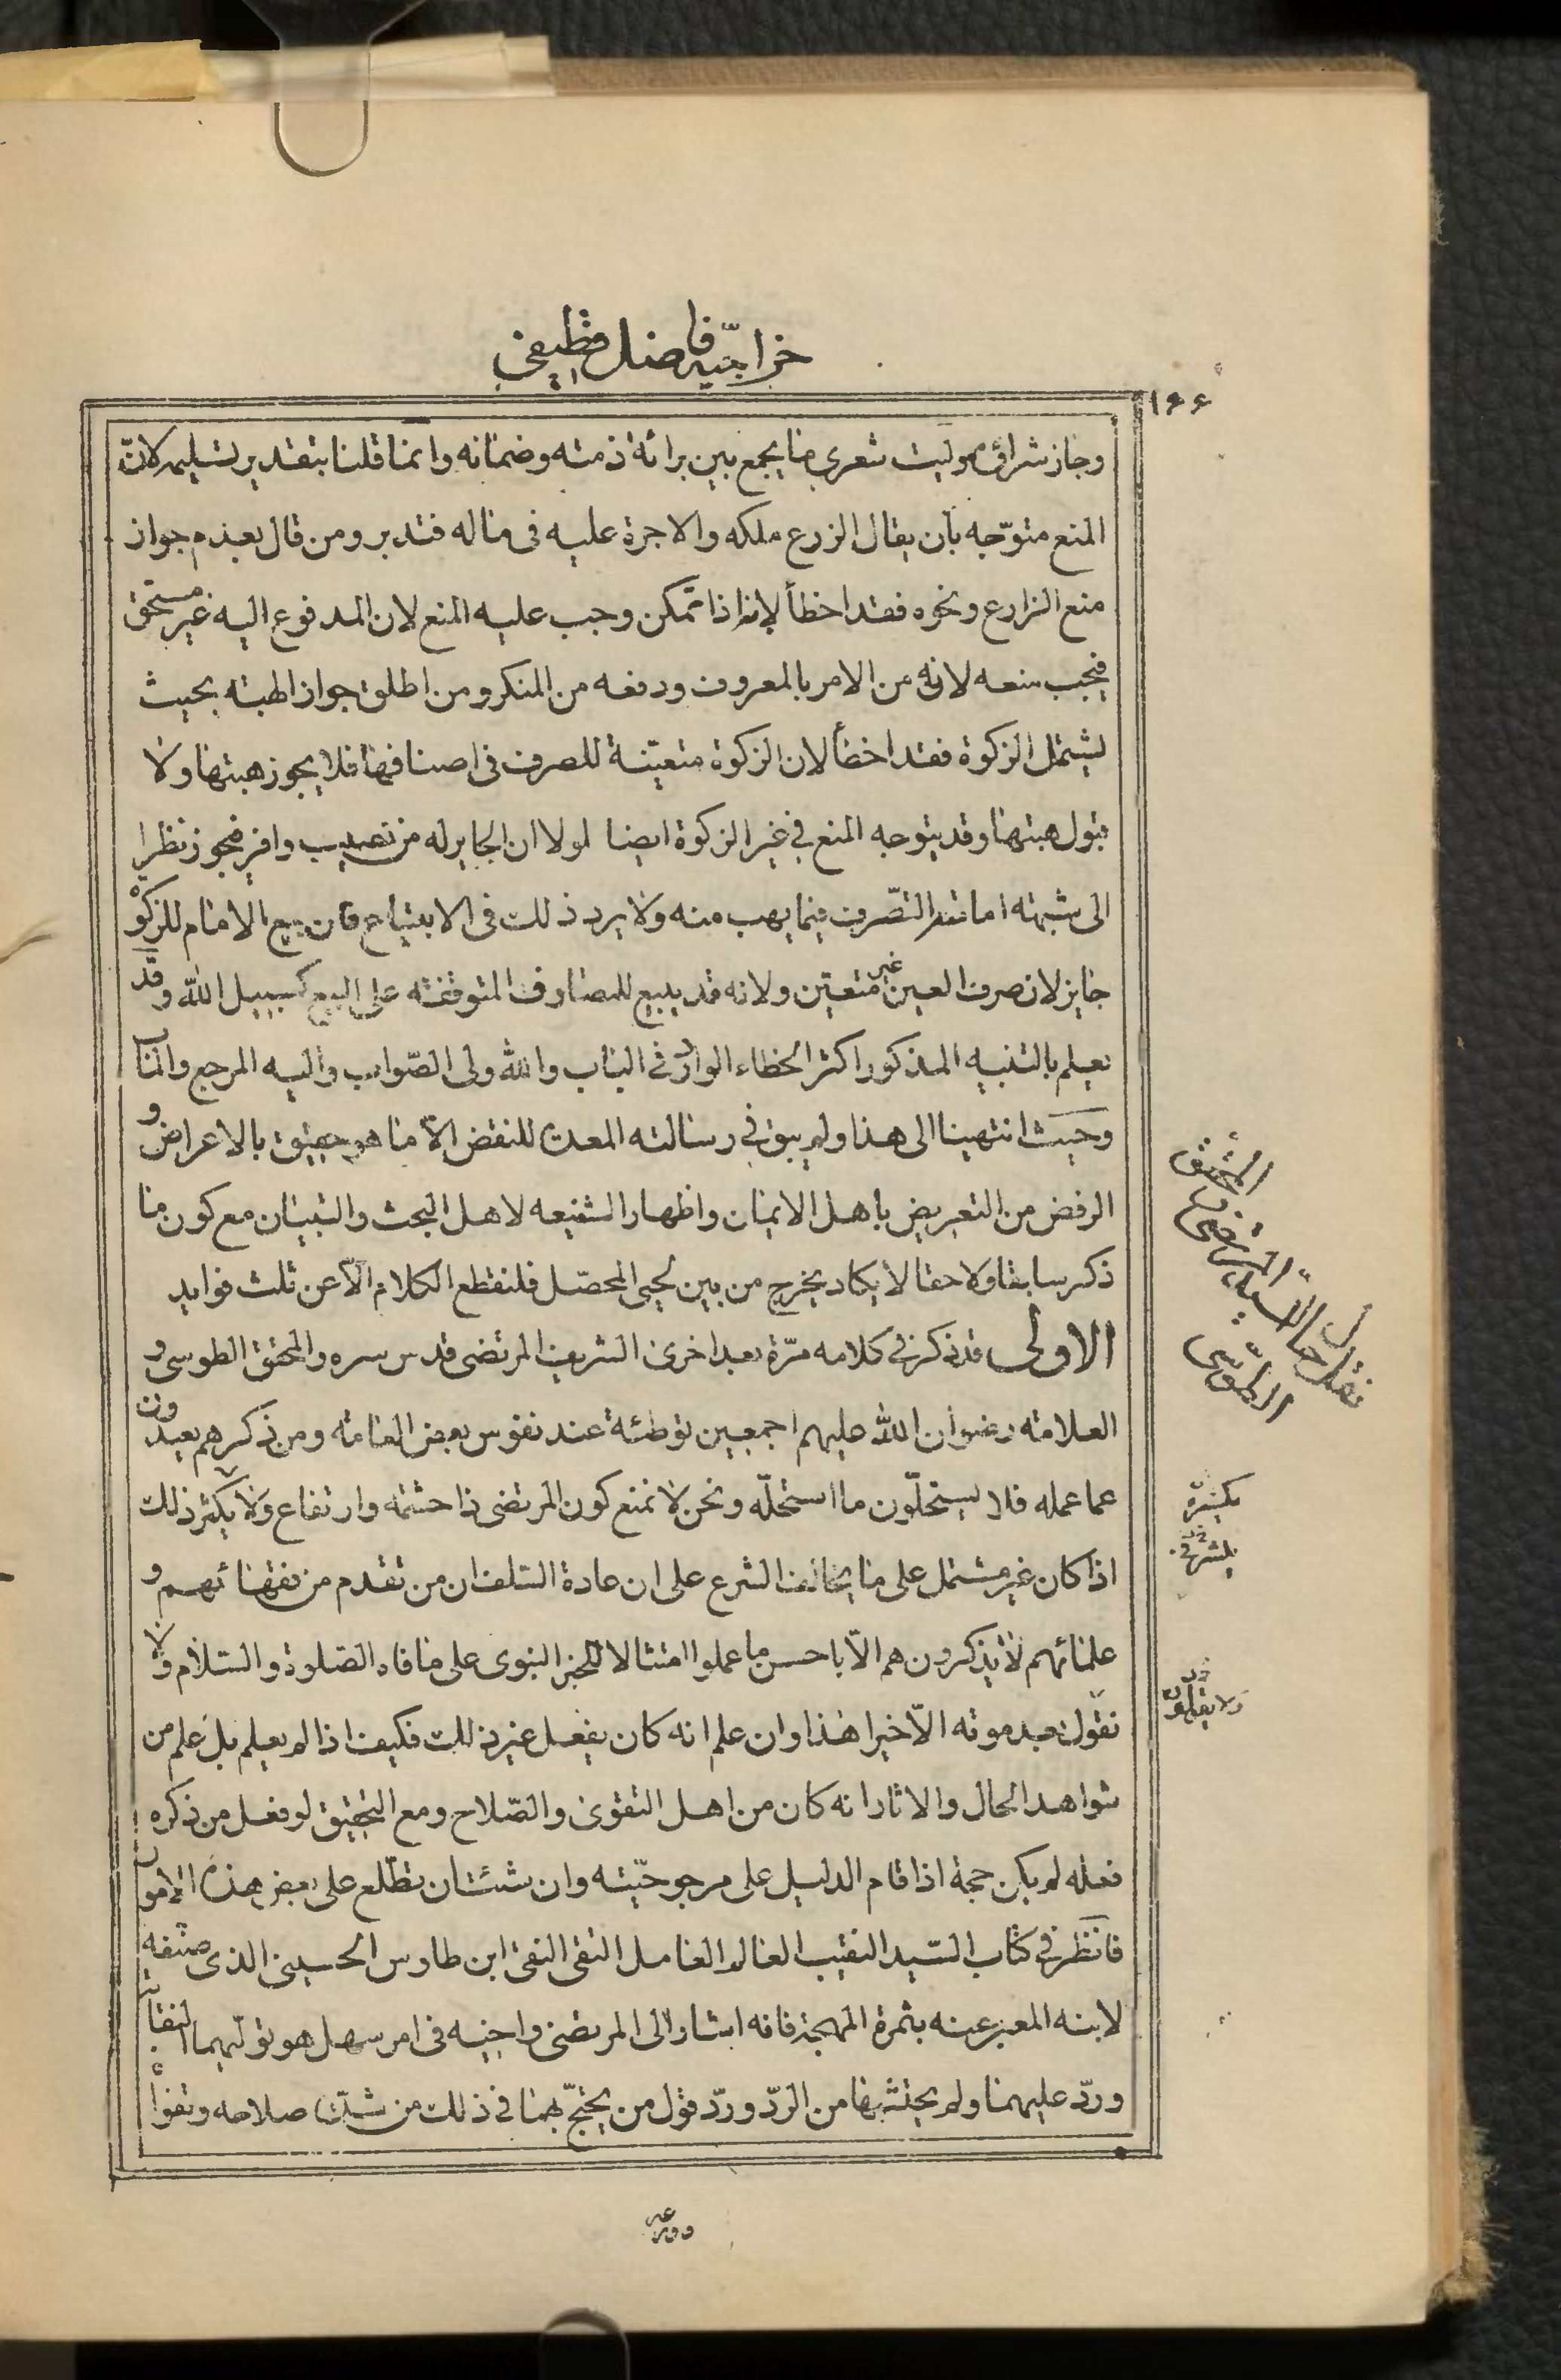 خراجيّه فاضل قطيفي
۱۶۶
وجاز شراؤه وليت شعري ما يجمع بين برائة ذمته وضمانه وانما قلنا بتقدير تسليمه لانّ
المنع متوّجه بأن يقال الزرع ملكه والاجرة عليه فى ماله فتدبر ومن قال بعدم جواز
منع الزارع ونحوه فقد اخطأ لانه اذا تمّكن وجب عليه المنع لان المدفوع اليه غير مستحق
فيجب منعه لانه من الامر بالمعروف ودفعه من المنكر ومن اطلق جواز الهبته بحيث
يشتمل الزكوة فقد اخطأ لان الزكوة متعيّنة للصرف فى اصنافها فلا يجوز هبتها ولا
قبول هبتها وقد يتوجه المنع في غير الزكوة ايضا لولا ان الجاير له من نصيب وافر فجوز نظرا
الى شبهته اما نفد التصّرف فيما يهب منه ولا يرد ذلك فى الابتياع فان بيع الامام للزكوة
جايز لان صرف العين غير متعين ولانه قد يبيع للمصارف المتوقفته على البيع كسبيل الله وقد
يعلم بالتنبيه المذكور اكثر الخطاء الوارد فى الباب والله ولى الصّواب واليه المرجع والمٱب
وحيث انتهينا الى هذا ولم يبق في رسالته المعدة للنقض الّا ما هو حقيق بالاعراض و
الرفض من التعريض باهل الايمان واظهار الشنيعه لاهل البحث والتبيان مع كون ما
ذكر سابقا ولاحقا لا يكاد يخرج من بين لحيى المحصّل فلنقطع الكلام الّا عن ثلث فوايد
الاولى قد ذكر في كلامه مرّة بعد اخرى الشريف المرتضى قدس سره والمحقق الطوسى و
العلامته رضوان الله عليهم اجمعين توطئة عند نفوس بعض العامته ومن ذكرهم بعيدون
عما عمله فلا يستحلّون ما استحلّه ونحن لا نمنع كون المرتضى ذا حشمته وارتفاع ولا يكثر ذلك
اذا كان غير مشتمل على ما يخالف الشرع على ان عادة السلف ان من تقدم من فقهائهم و
علمائهم لا يذكرون هم الّا باحسن ما عملوا امتثالا للخبر النبوى على ما قاه الصّلوة والسّلام ولا
نقول بعد موته الّا خيرا هذا وان علم انه كان يفعل غير ذلك فكيف اذا لم يعلم بل علم من
شواهد الحال والاثار انه كان من اهل التقوى والصّلاح ومع التحقيق لو فعل من ذكره
فعله لم يكن حجة اذا قام الدليل على مرجوحيّته وان شئت ان تطّلع على بعض هذه الامور
فانظر في كتاب السّيد النقيب العالم العامل التقى النقى ابن طاوس الحسينى الذى صنّفه
لابنه المعبر عنه بثمرة المهجة فانه اشار الى المرتضى واخيه فى امر سهل هو توليهما النقابة
وردّ عليهما ولم يحتشهما من الردّ وردّ قول من يحتجّ بهما في ذلك من شدّة صلاحه وتقواه
نقل حال السيد المرتضى
المحقق الطوسى
يكسره
ولا يقولون